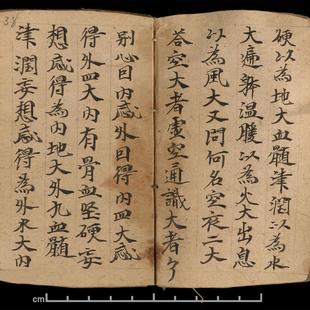 硬以為地大血髓津潤以為水
大溫暖以為火大出息
以為風大又問何名空二大
荅空大者虛空通識大者
別心因內感外因得內四大感
得外四大內有骨血堅硬妄
想感得為內地大外九血髓
津潤妄想感得為外水大內
38
cm